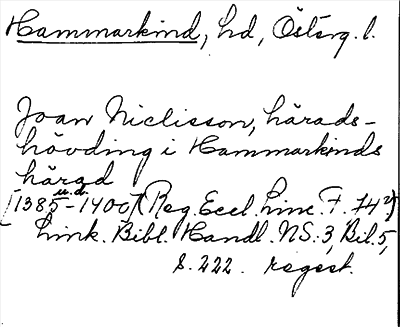 Hammarkind, hd, Österg. l.
Joan Niclisson, härads-
hövding i Hammarkinds
härad
[1385 u.d. -1400] (Reg. Eccl. Linc. F. 74 v)
Link. Bibl. Handl. NS: 3, Bil. 5,
s. 222. regest.